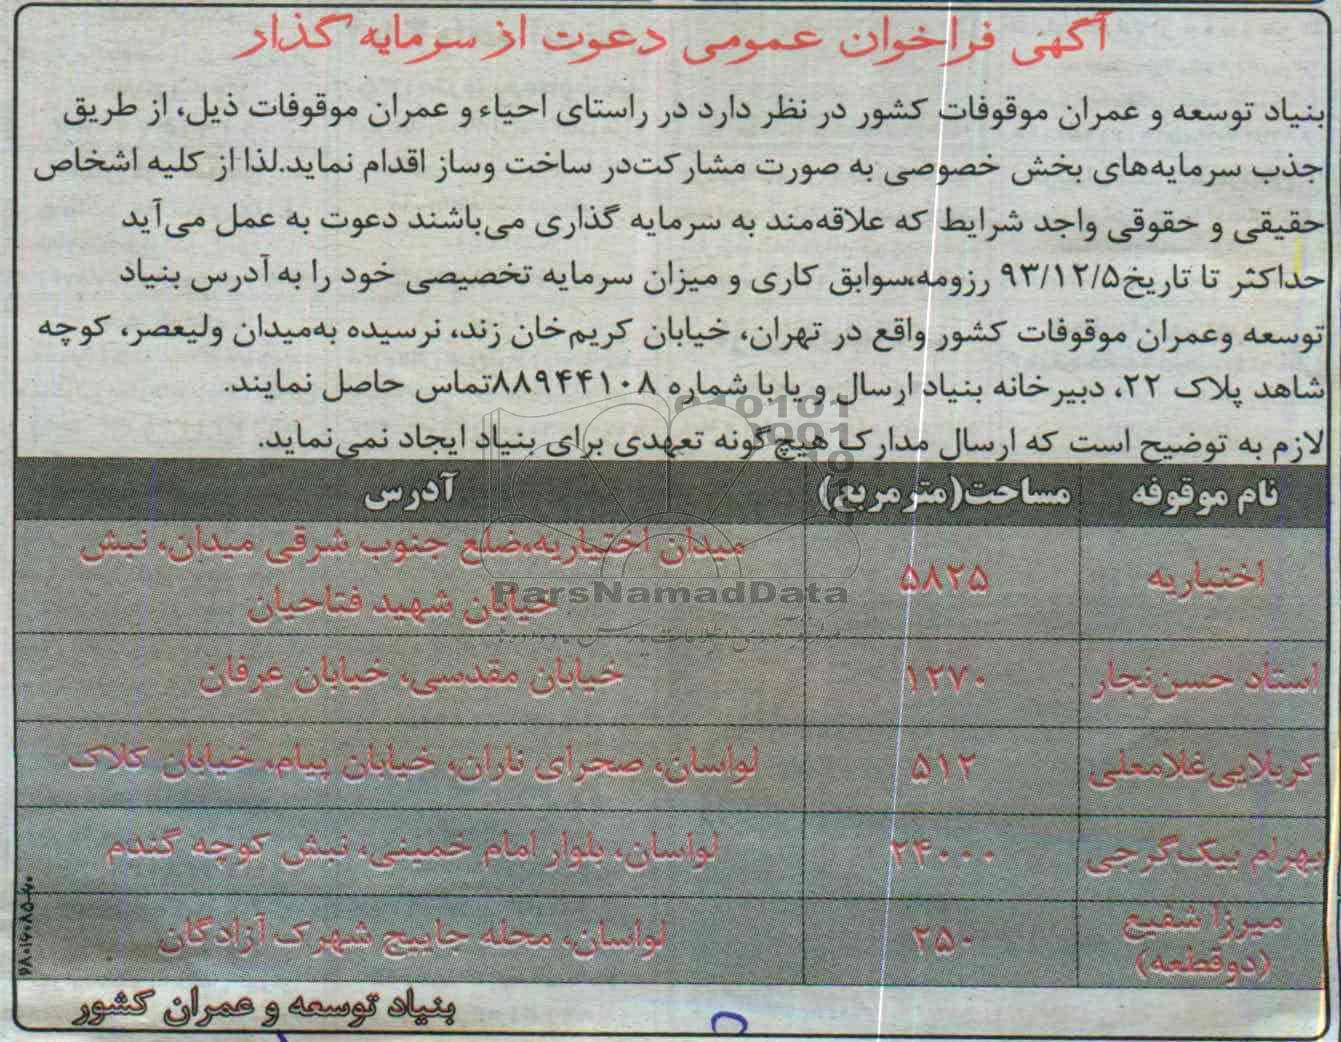 آگهی فراخوان عمومی دعوت از سرمایه گذار
بنیاد توسعه و عمران موقوفات کشور در نظر دارد در راستای احیاء و عمران موقوفات ذیل، از طریق
جذب سرمایه‌های بخش خصوصی به صورت مشارکت‌در ساخت وساز اقدام نماید.لذا از کلیه اشخاص
حقیقی و حقوقی واجد شرایط که علاقه‌مند به سرمایه گذاری می‌باشند دعوت به عمل می‌آید
حداکثر تا تاریخ۹۳/۱۲/۵ رزومه،سوابق کاری و میزان سرمایه تخصیصی خود را به آدرس بنیاد
توسعه وعمران موقوفات کشور واقع در تهران، خیابان کریم‌خان زند، نرسیده به‌میدان ولیعصر، کوچه
شاهد پلاک ۲۲، دبیرخانه بنیاد ارسال و یا با شماره ۸۸۹۴۴۱۰۸تماس حاصل نمایند.
لازم به توضیح است که ارسال مدارک هیچ‌گونه تعهدی برای بنیاد ایجاد نمی‌نماید.
نام موقوفه مساحت(مترمربع) آدرس
اختیاریه ۵۸۲۵ میدان اختیاریه،ضلع جنوب شرقی میدان، نبش
خیابان شهید فتاحیان
استاد حسن‌نجار ۱۲۷۰ خیابان مقدسی، خیابان عرفان
کربلایی‌غلامعلی ۵۱۲ لواسان، صحرای ناران، خیابان پیام، خیابان کلاک
بهرام بیک‌گرجی ۲۴۰۰۰ لواسان، بلوار امام خمینی، نبش کوچه گندم
میرزا شفیع
(دوقطعه) ۲۵۰ لواسان، محله جاییج شهرک آزادگان
بنیاد توسعه و عمران کشور
ParsNamadData